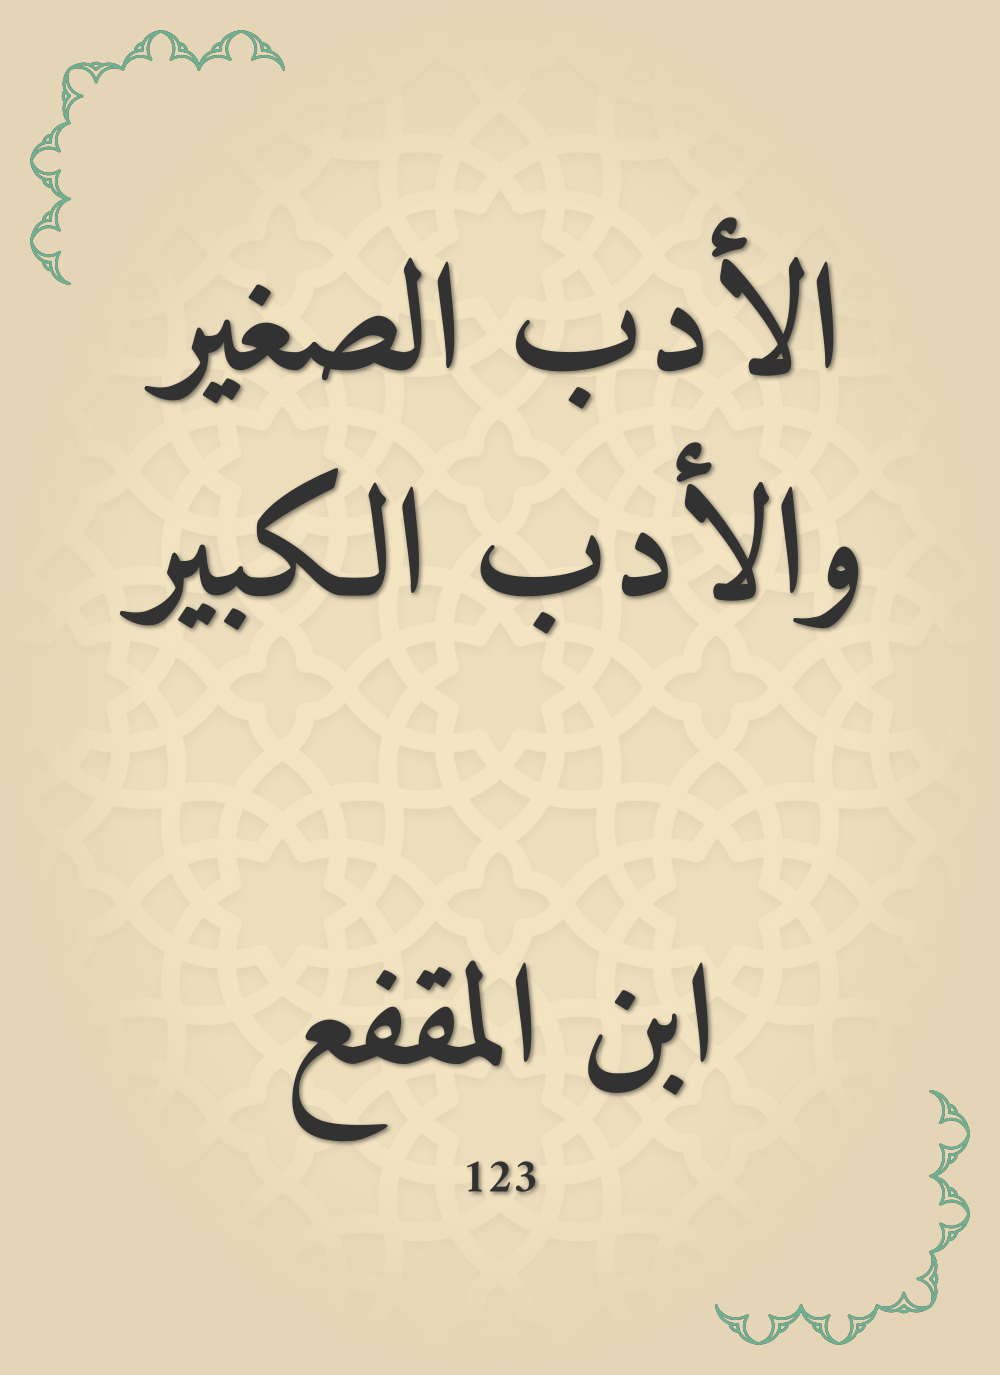 الأدب الصغير
والأدب الكبير
ابن المقفع
123